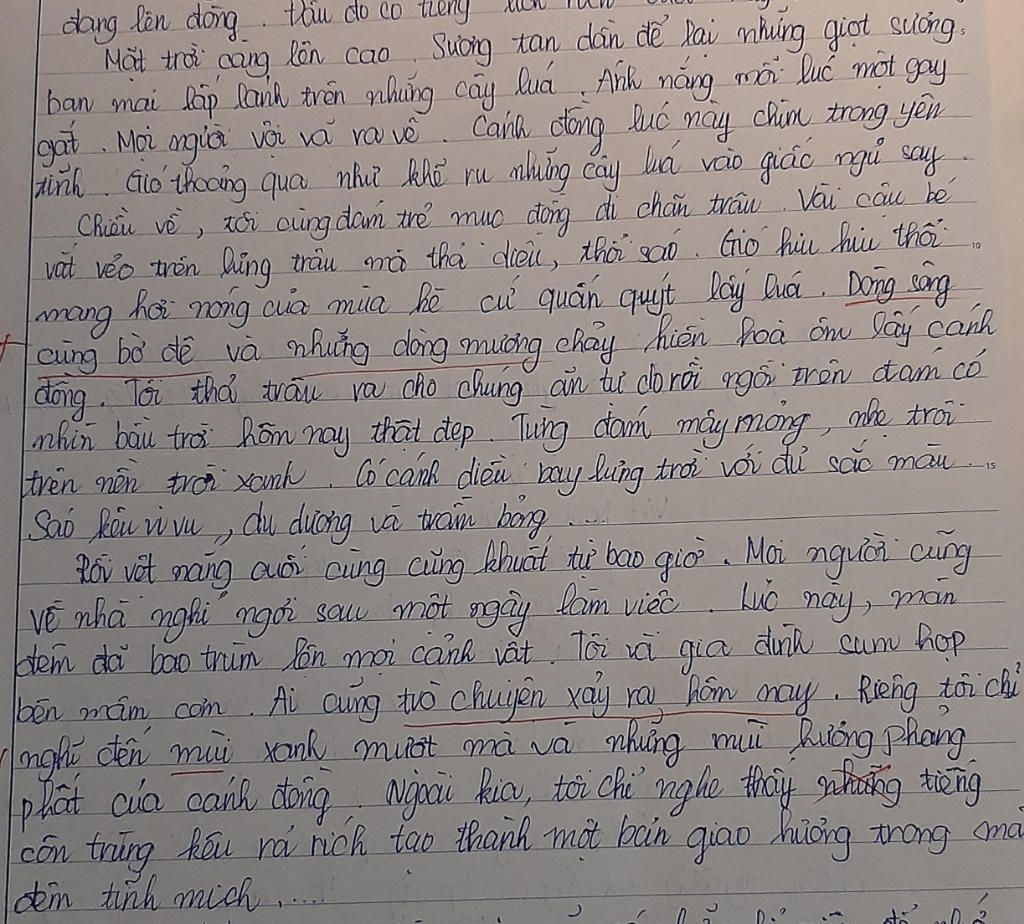 đang lên đòng. Đâu đó có tiếng
Mặt trời càng lên cao. Sương tan dần để lại những giọt sương
ban mai lấp lánh trên những cây luá. Ánh nắng mỗi lúc một gay
gắt. Mọi người vội vã ra về. Cánh đồng lúc này chìm trong yên
tĩnh. Gió thoảng qua như khẽ ru những cây luá vào giấc ngủ say.
Chiều về, tôi cùng đám trẻ mục đồng đi chăn trâu. Vài cậu bé
vắt vẻo trên lưng trâu mà thả diều, thổi sáo. Gió hiu hiu thổi 10
mang hơi nóng của mùa hè cứ quấn quýt lấy luá. Dòng sông
cùng bờ đê và những dòng mương chảy hiền hoà ôm lấy cánh
đồng. Tôi thả trâu ra cho chúng ăn tự do rồi ngồi trên đám cỏ
nhìn bầu trời hôm nay thật đẹp. Từng đám mây mỏng, nhẹ trôi
trên nền trời xanh. Có cánh diều bay lưng trời với đủ sắc màu. 15
Sáo kêu vi vu, du dương và trầm bổng....
Rồi vệt nắng cuối cùng cũng khuất tự bao giờ. Mọi người cũng
về nhà nghỉ ngơi sau một ngày làm việc. Lúc này, màn
đêm đã bao trùm lên mọi cảnh vật. Tôi và gia đình sum họp
bên mâm cơm. Ai cũng trò chuyện xảy ra hôm nay. Riêng tôi chỉ
nghĩ đến mùi xanh mướt mà và những mùi hương phảng
phất của cánh đồng. Ngoài kia, tôi chỉ nghe thấy những tiếng
côn trùng kêu rả rích tạo thành một bản giao hưởng trong
đêm tĩnh mịch.....